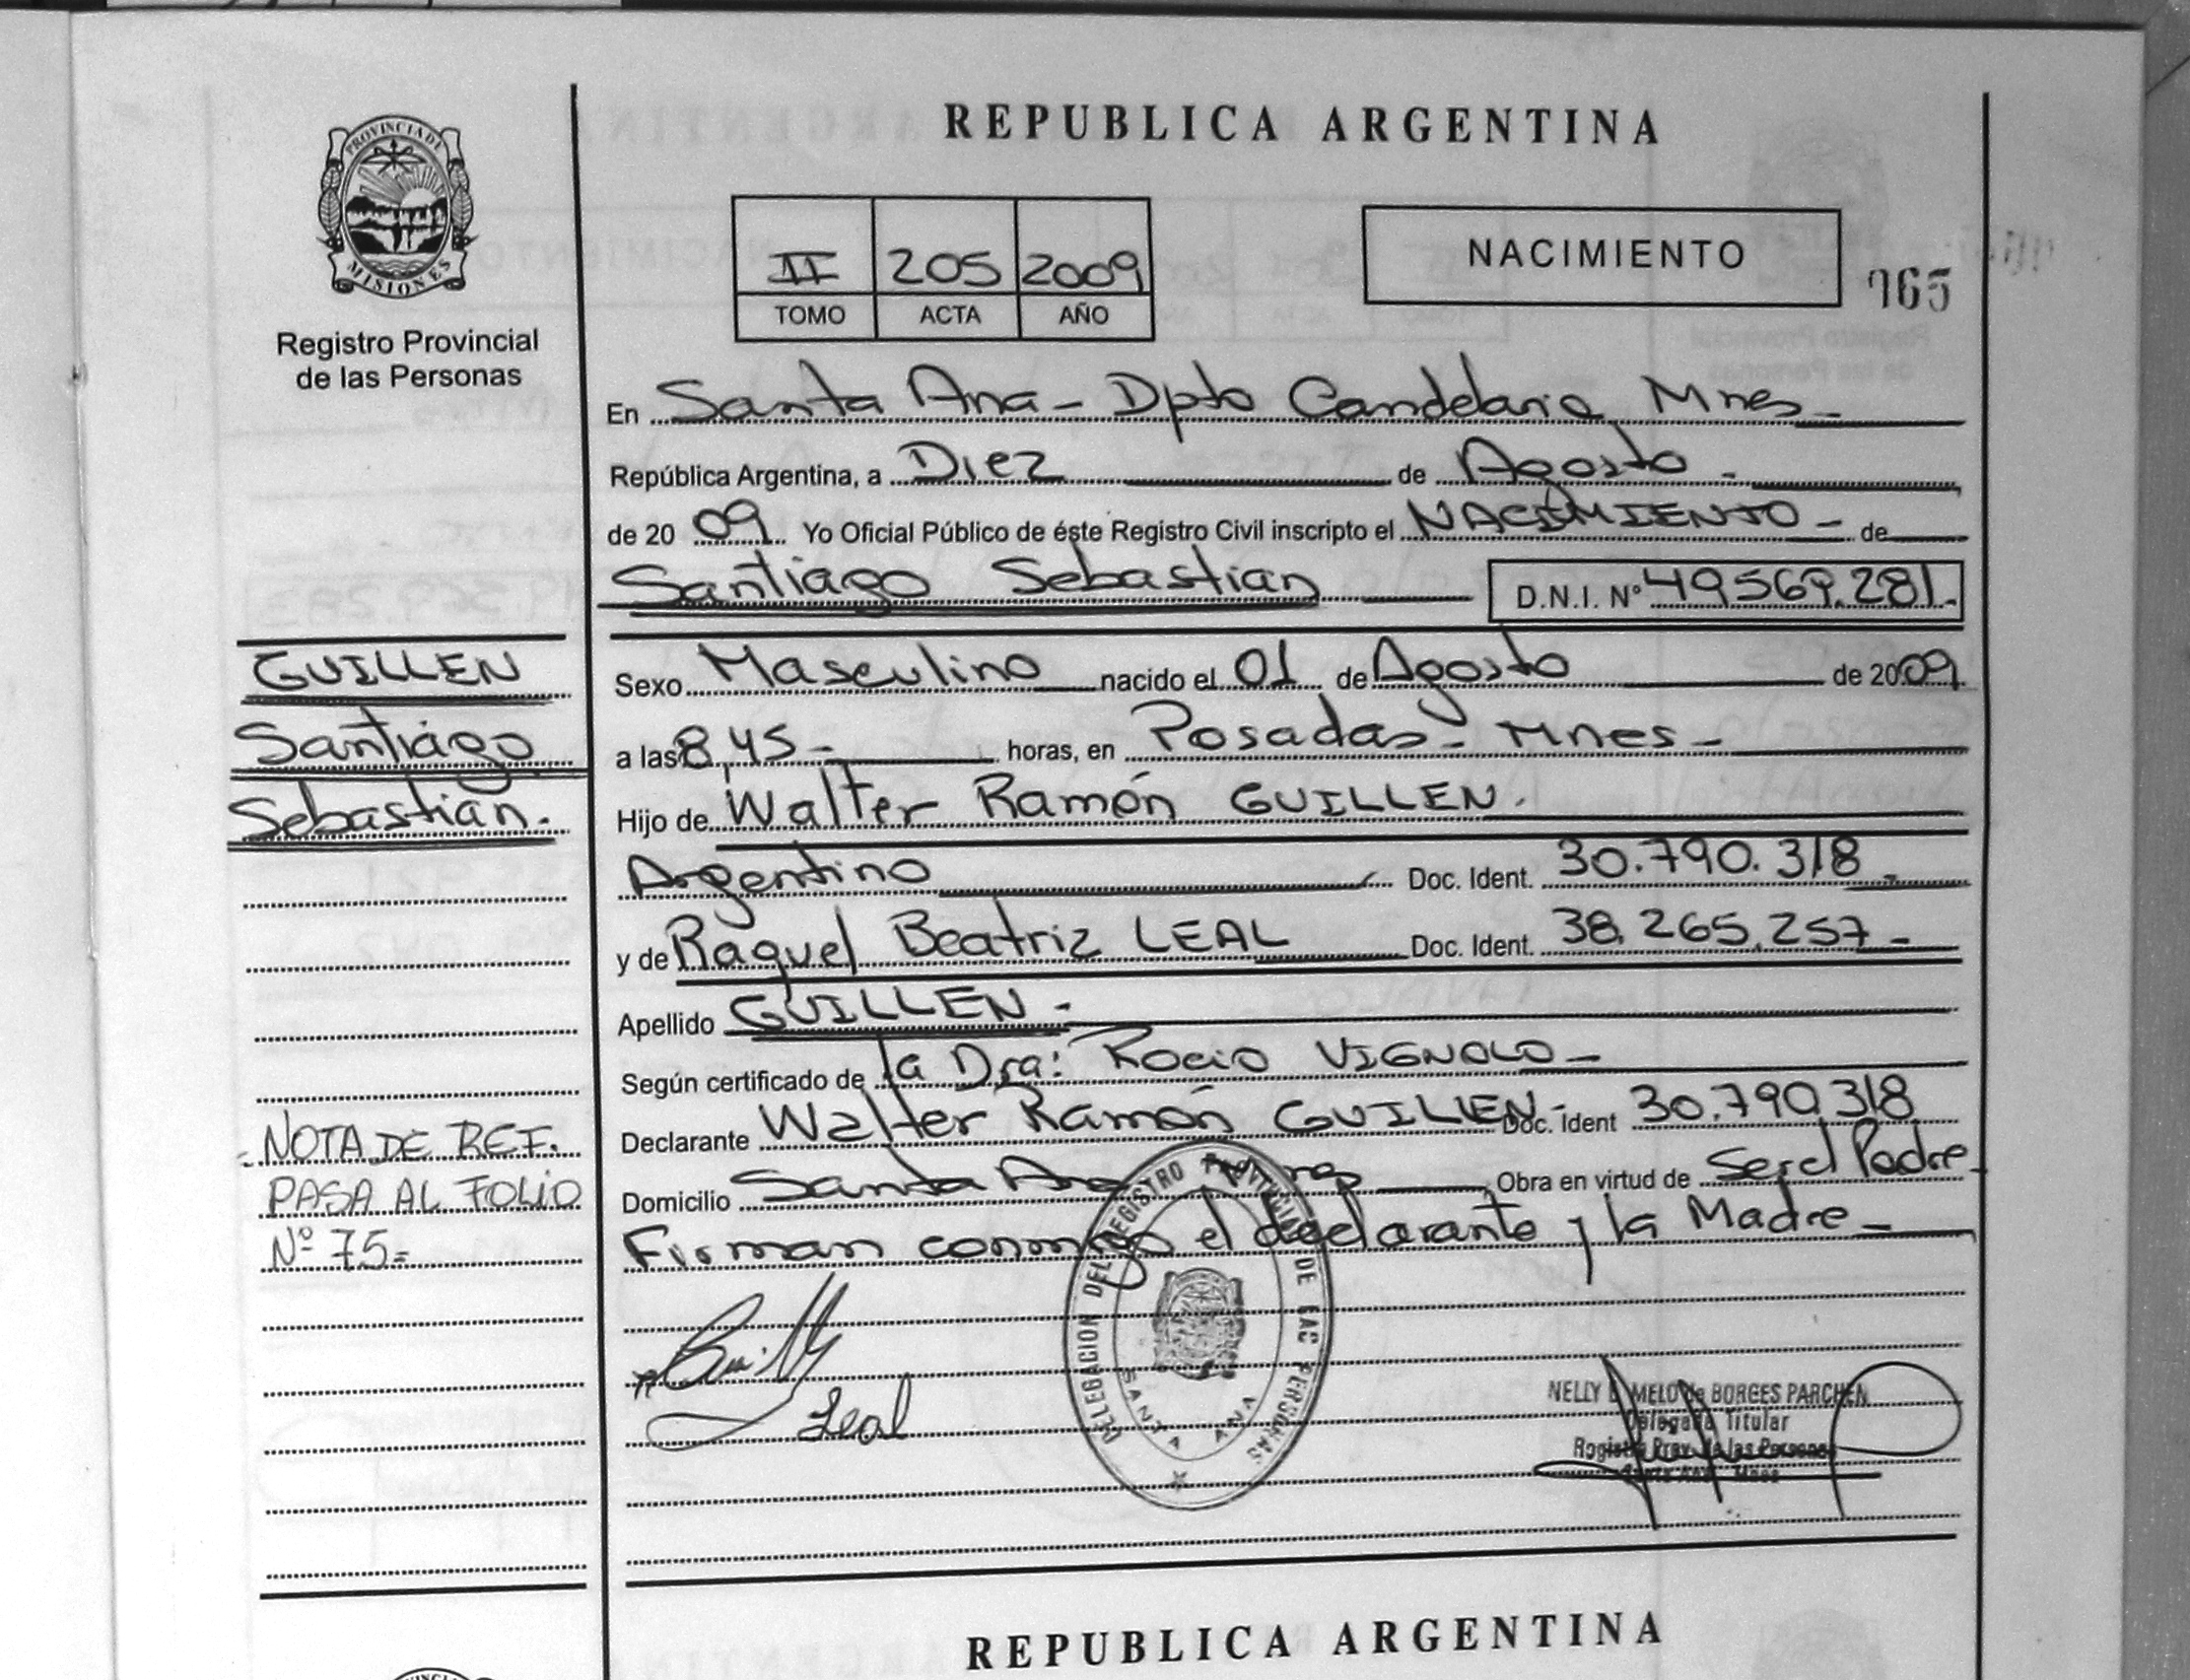 REPUBLICA ARGENTINA
PROVINCIA DE MISIONES
Registro Provincial
de las Personas
II 205 2009
TOMO ACTA AÑO
NACIMIENTO
165
En Santa Ana - Dpto Candelaria Mnes -
República Argentina, a Diez de Agosto -
de 20 09 Yo Oficial Público de éste Registro Civil inscripto el NACIMIENTO - de
Santiago Sebastian D.N.I. Nº 49569.281.-
GUILLEN
Santiago
Sebastian.
NOTA DE REF.
PASA AL FOLIO
Nº 75=
Sexo Masculino nacido el 01 de Agosto de 2009
a las 8,45 - horas, en Posadas - Mnes -
Hijo de Walter Ramón GUILLEN.
Argentino Doc. Ident. 30.790.318 -
y de Raquel Beatriz LEAL Doc. Ident. 38.265.257 -
Apellido GUILLEN -
Según certificado de la Dra: Rocio VIGNOLO -
Declarante Walter Ramón GUILLEN - Doc. Ident 30.790.318
Domicilio Santa Ana Mnes Obra en virtud de Ser el Padre -
Firman conmigo el declarante y la Madre -
DELEGACION DEL REGISTRO PROVINCIAL DE LAS PERSONAS
SANTA ANA
Leal
NELLY MELO de BORGES PARCHEN
Delegada Titular
Registro Prov. de las Personas
Santa Ana Mnes
REPUBLICA ARGENTINA